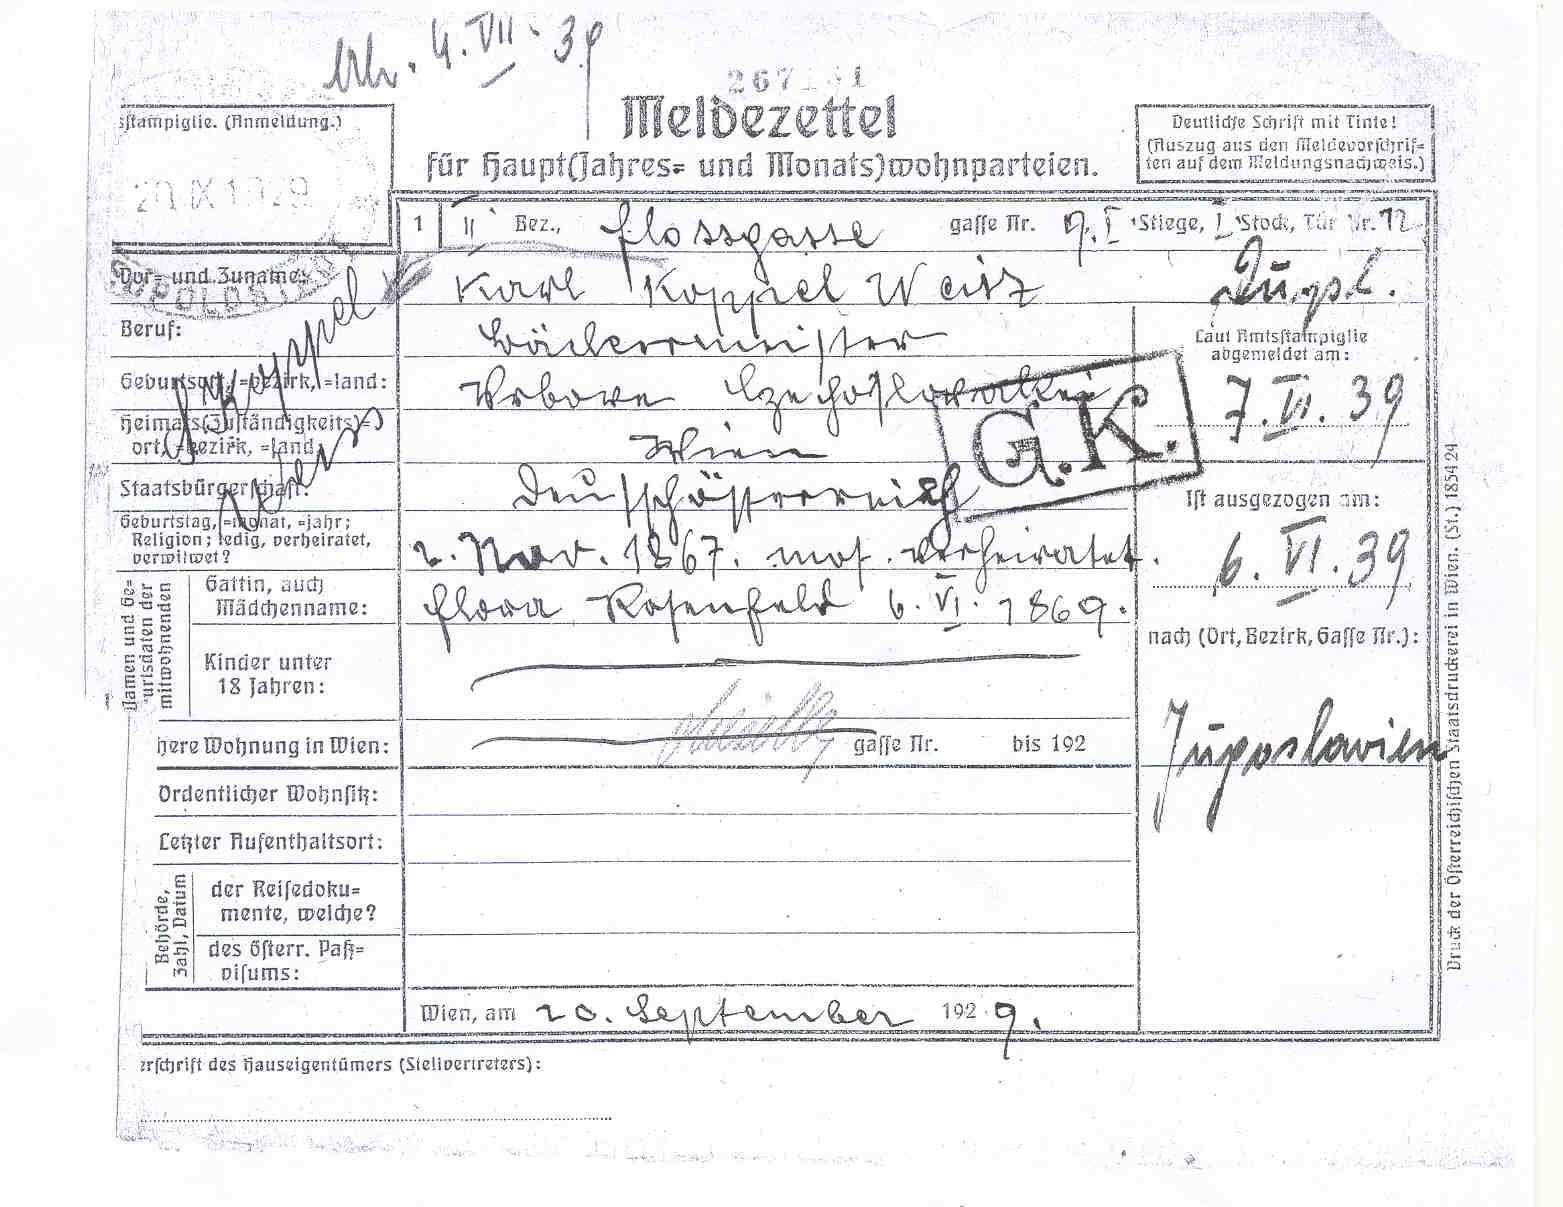 4. VII. 39
Meldezettel
für Haupt(Jahres= und Monats)wohnparteien.
sstampiglie. (Anmeldung.)
20. IX 1929
Deutliche Schrift mit Tinte!
(Auszug aus den Meldevorschrif=
ten auf dem Meldungsnachweis.)
1 II Bez., Flossgasse gasse Nr. 9. I Stiege, I Stock, Tür Nr. 12
Vor= und Zuname: Karl Koppel Weisz
Koppel
Beruf: Bäckermeister
Laut Amtsstampiglie
abgemeldet am:
7. VI. 39
Geburtsort, =bezirk, =land: Vrbove Czechoslovakei
G.K.
Heimats(Zuständigkeits)=
ort, =bezirk, =land: Wien
Staatsbürgerschaft: Deutschösterreich
Ist ausgezogen am:
6. VI. 39
Geburtstag, =monat, =jahr;
Religion; ledig, verheiratet,
verwitwet?
2. Nov. 1867. mos. verheiratet.
Namen und Ge=
urtsdaten der
mitwohnenden
Gattin, auch
Mädchenname: Flora Rosenfeld 6. VI. 1869.
nach (Ort, Bezirk, Gasse Nr.):
Jugoslavien
Kinder unter
18 Jahren:
here Wohnung in Wien: gasse Nr. bis 192
Ordentlicher Wohnsitz:
Letzter Aufenthaltsort:
Behörde,
Zahl, Datum
der Reisedoku=
mente, welche?
des österr. Paß=
visums:
Wien, am 20. September 192 9.
erschrift des Hauseigentümers (Stellvertreters):
Druck der Österreichischen Staatsdruckerei in Wien. (St.) 1854 24